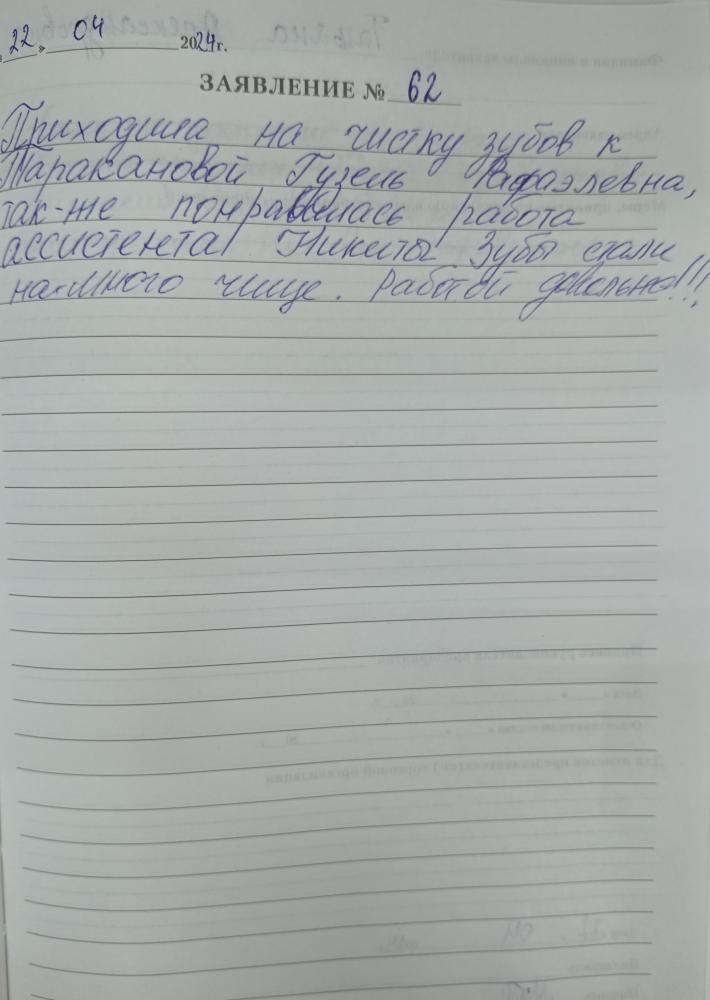 « 22 » 04 2024 г.
ЗАЯВЛЕНИЕ № 62
Приходила на чистку зубов к
Таракановой Гузель Рафаэлевна,
так-же понравилась работа
ассистента Никиты Зубы стали
на-много чище. Работой довольна!!!